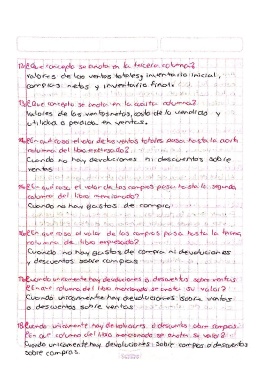 12¿Que concepto se anota en la tercera columna?
Valores de las ventas totales, inventario inicial,
compras netas y inventario final.
13¿Que concepto se anota en la cuarta columna?
Valores de las ventas netas, costo de lo vendido y
utilidad o perdida en ventas.
14¿En qué caso el valor de las ventas totales pasa hasta la
columna del libro
Cuando no hay devoluciones ni descuentos sobre
ventas
15¿En qué caso el valor de las compras pasa hasta la segunda
columna del libro mencionado?
Cuando no hay gastos de compra.
16¿En que caso el valor de las compras pasa hasta la
columna de libro expresado?
Cuando no hay gastos de compra ni devoluciones
y descuentos sobre compras
17Cuando unicamente hay devoluciones o descuentos sobre ventas
¿En que columna del libro mencionado se anota su valor?
Cuando unicamente hay devoluciones sobre ventas
o descuentos sobre ventas
18Cuando unicamente hay devoluciones o descuentos sobre compras.
¿En que columna del libro mencionado se anota su valor?
Cuando unicamente hay devoluciones sobre compras o descuentos
sobre compras.